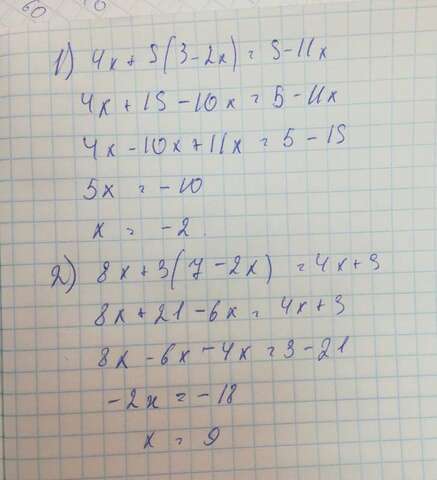 1) 4x + 5(3 - 2x) = 5 - 11x
4x + 15 - 10x = 5 - 11x
4x - 10x + 11x = 5 - 15
5x = -10
x = -2
2) 8x + 3(7 - 2x) = 4x + 3
8x + 21 - 6x = 4x + 3
8x - 6x - 4x = 3 - 21
-2x = -18
x = 9